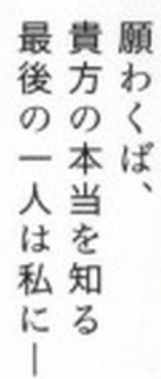 願わくば、
貴方の本当を知る
最後の一人は私に―